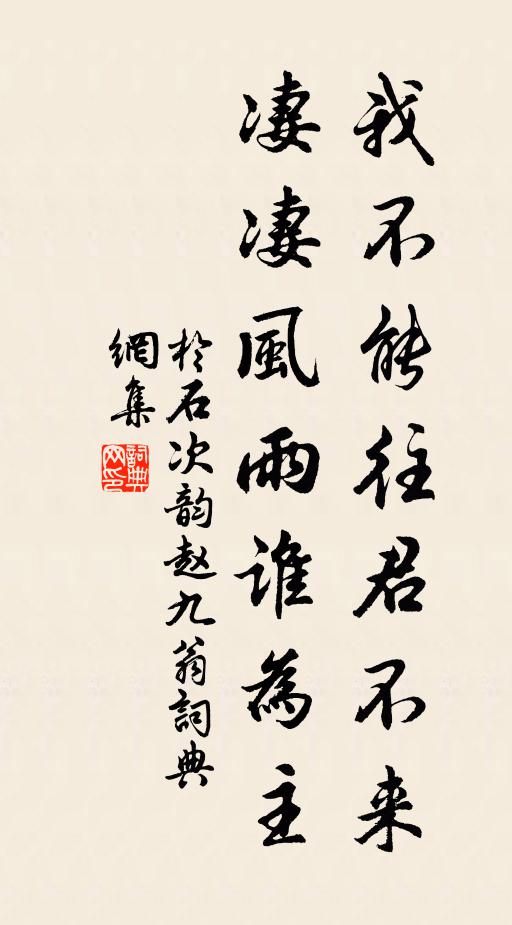 我不能往君不来
凄凄風雨谁為主
於石次韵赵九翁詞典
網集
詞典网印